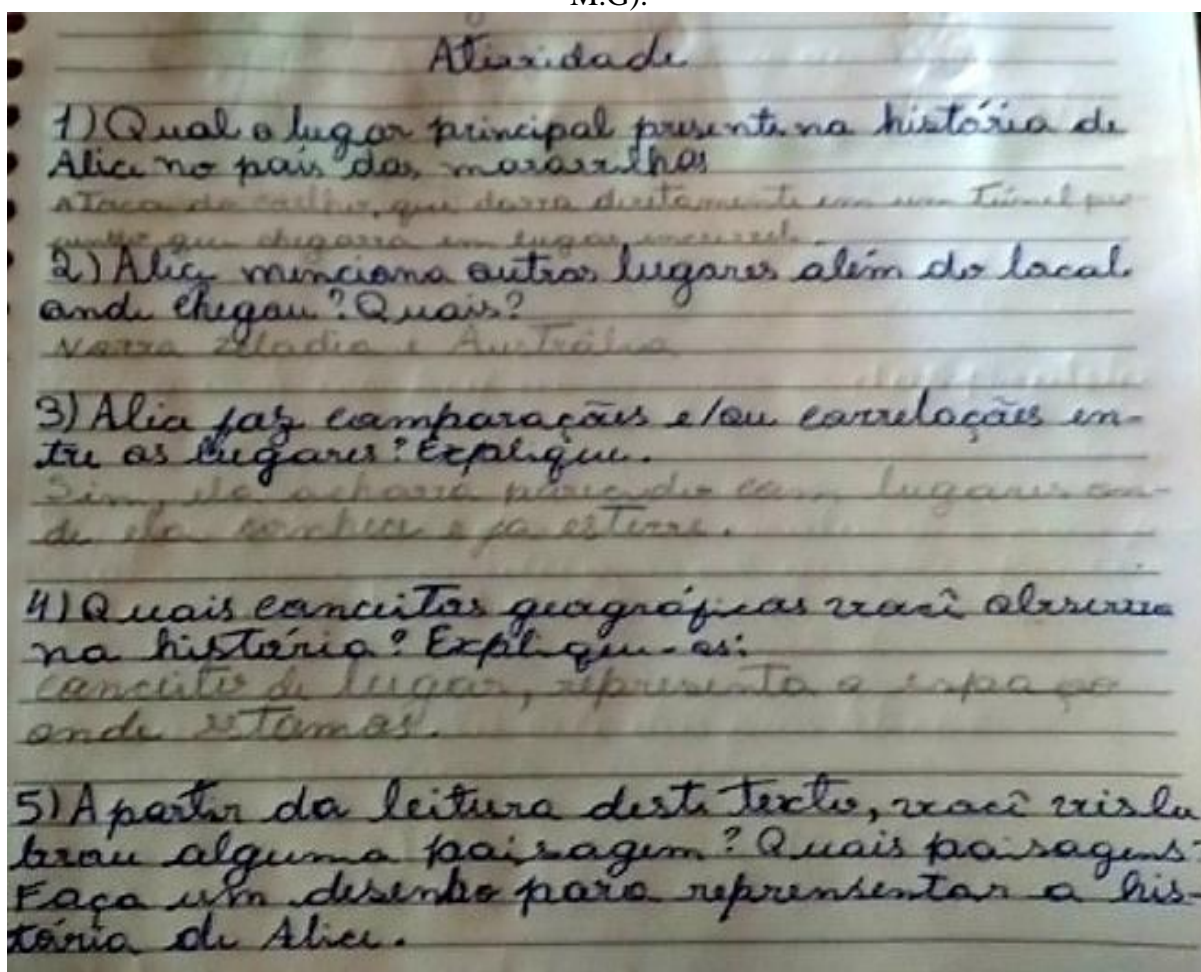 M.G).
Atividade
1) Qual o lugar principal presente na história de
Alice no país das maravilhas
A Toca do coelho, que dava diretamente em um Túnel pro-
fundo, que chegava em lugar
2) Alice menciona outros lugares além do local
onde chegou? Quais?
Nova Zelândia e Austrália
3) Alice faz comparações e/ou correlações en-
tre os lugares? Explique.
Sim, ela achava parecido com lugares on-
de ela conhece e já esteve.
4) Quais conceitos geográficos você observou
na história? Explique-os:
conceito de lugar, representa o espaço
onde estamos.
5) A partir da leitura deste texto, você vislu
brou alguma paisagem? Quais paisagens?
Faça um desenho para reprensentar a his-
tória de Alice.